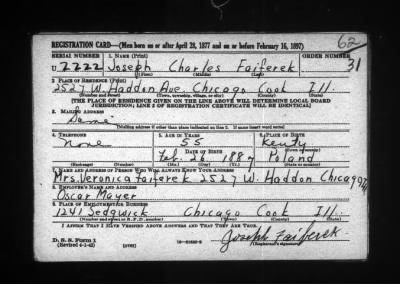 REGISTRATION CARD—(Men born on or after April 28, 1877 and on or before February 16, 1897)
62
SERIAL NUMBER 1. NAME (Print) ORDER NUMBER
U. 2222 Joseph Charles Faiferek 31
(First) (Middle) (Last)
2. PLACE OF RESIDENCE (Print)
2527 W. Haddon Ave. Chicago Cook Ill.
(Number and street) (Town, township, village, or city) (County) (State)
[THE PLACE OF RESIDENCE GIVEN ON THE LINE ABOVE WILL DETERMINE LOCAL BOARD
JURISDICTION; LINE 2 OF REGISTRATION CERTIFICATE WILL BE IDENTICAL]
3. MAILING ADDRESS
Same
[Mailing address if other than place indicated on line 2. If same insert word same]
4. TELEPHONE 5. AGE IN YEARS 6. PLACE OF BIRTH
None 55
DATE OF BIRTH (Town or county)
Feb. 1887 Poland
(Exchange) (Number) (Mo.) (Day) (Yr.) (State or country)
7. NAME AND ADDRESS OF PERSON WHO WILL ALWAYS KNOW YOUR ADDRESS
Mrs. Veronica Faiferek 2527 W. Haddon Chicago
8. EMPLOYER'S NAME AND ADDRESS
Oscar Mayer
9. PLACE OF EMPLOYMENT OR BUSINESS
1241 Sedgwick Chicago Cook Ill.
(Number and street or R. F. D. number) (Town) (County) (State)
I AFFIRM THAT I HAVE VERIFIED ABOVE ANSWERS AND THAT THEY ARE TRUE.
D. S. S. Form 1 Joseph Faiferek
(Revised 4-1-42) (over) (Registrant's signature)